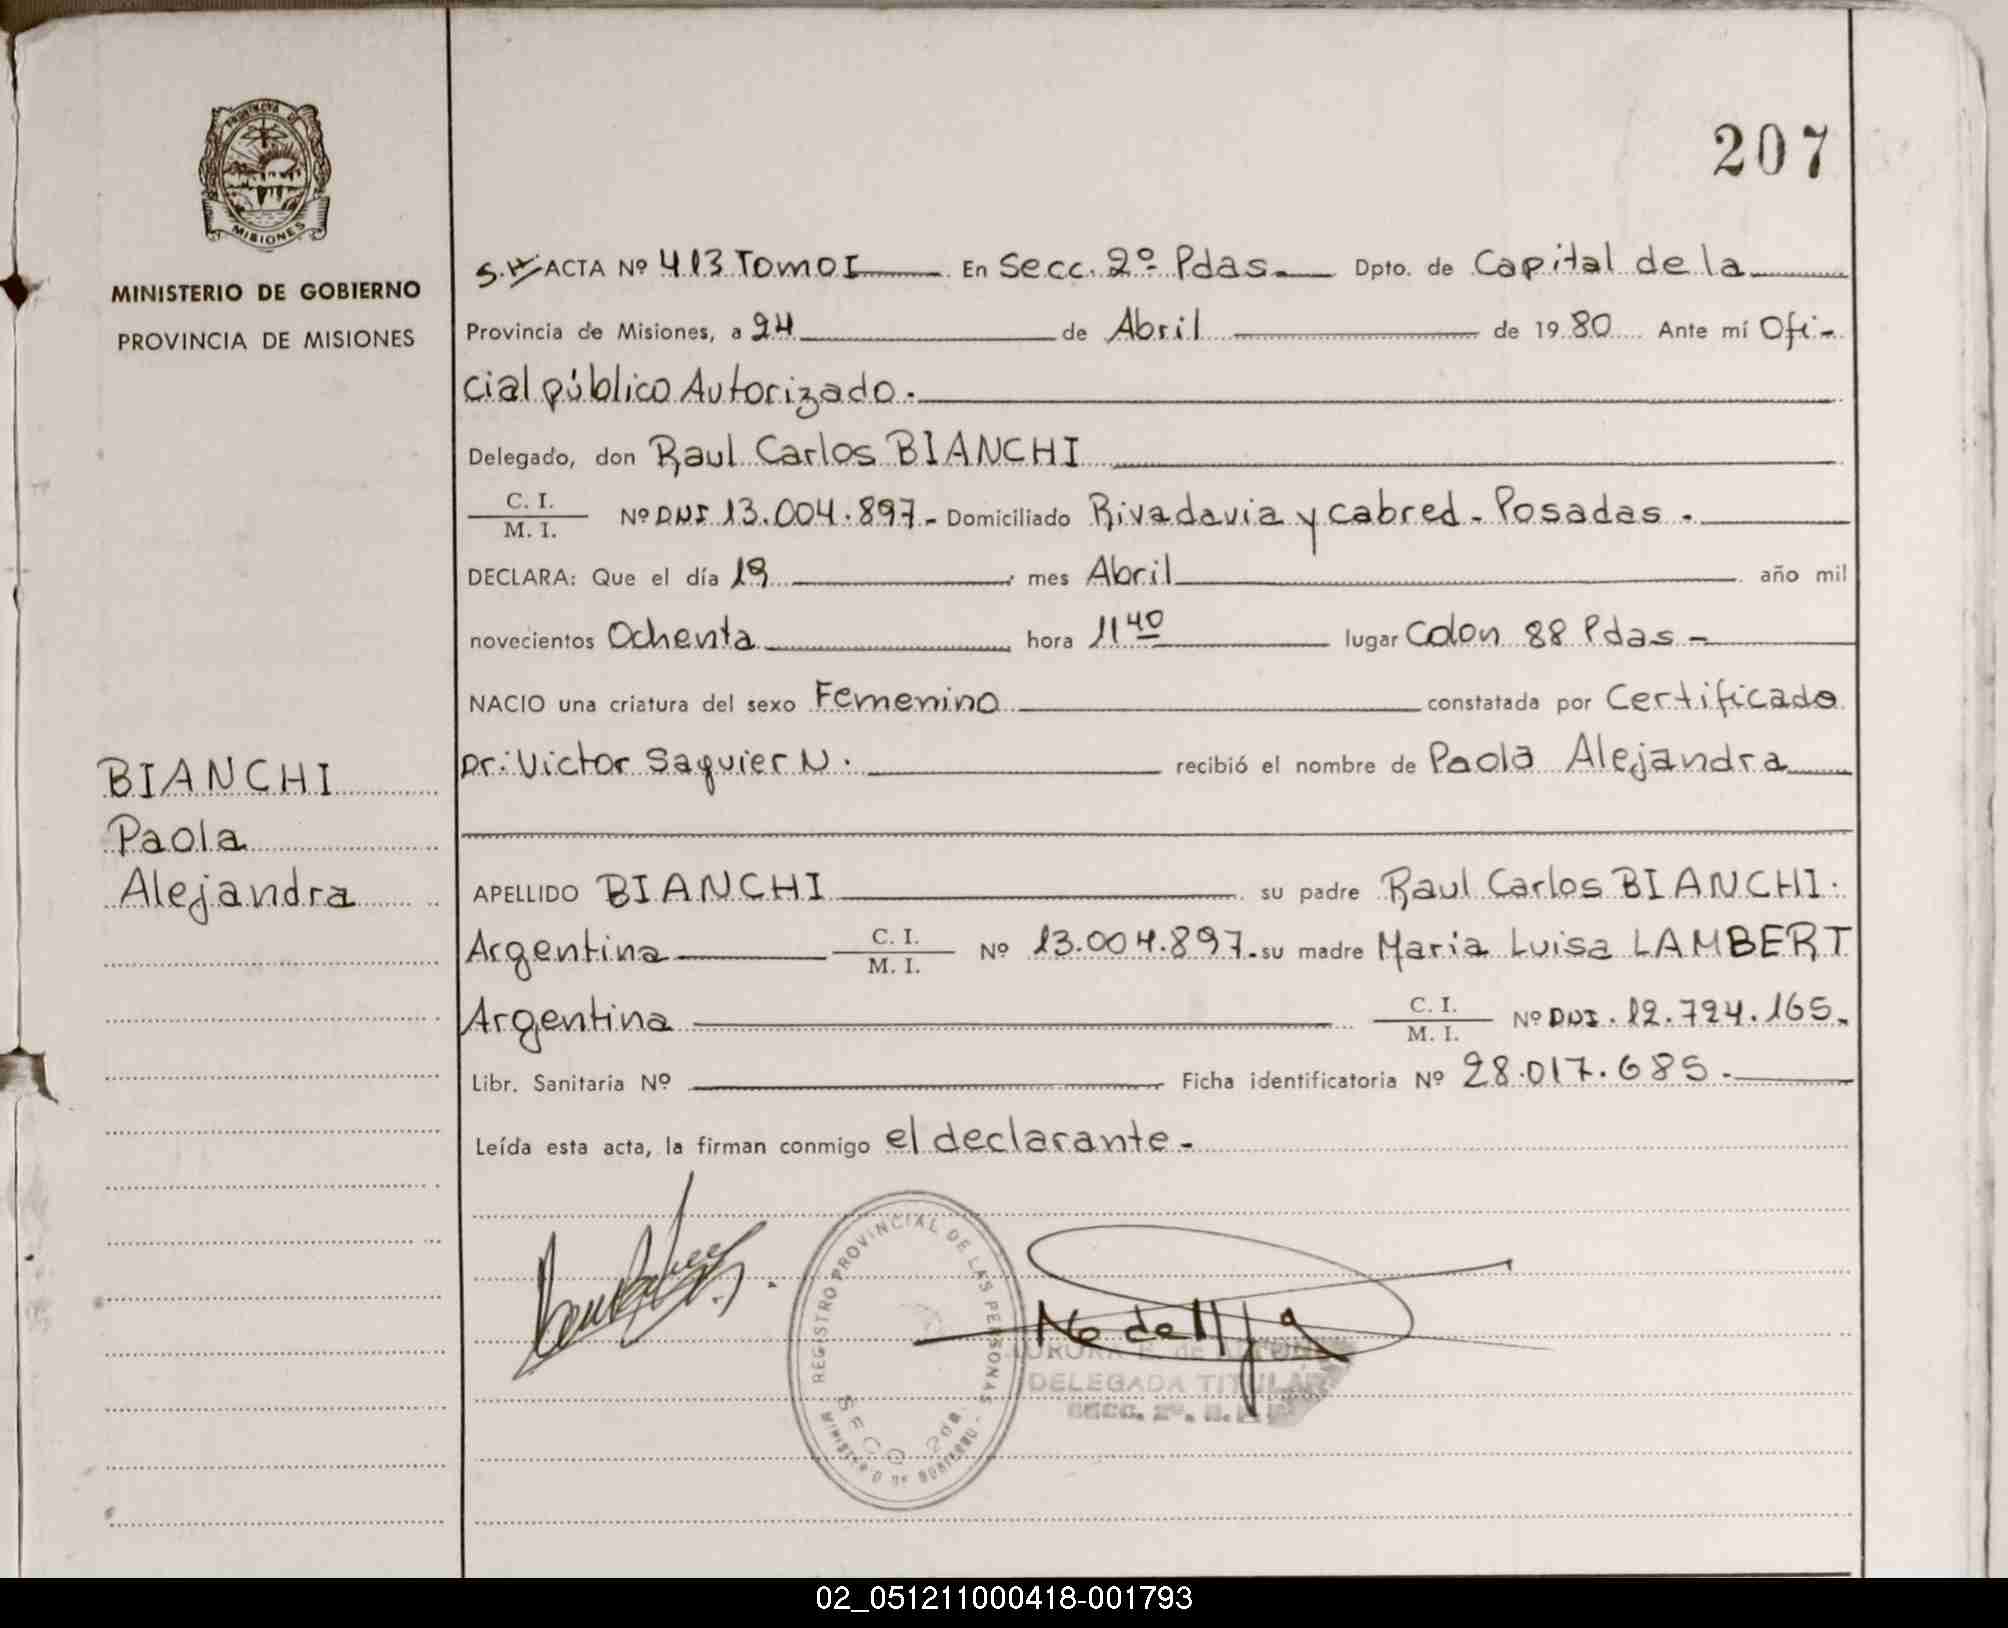 207
PROVINCIA DE
MISIONES
MINISTERIO DE GOBIERNO
PROVINCIA DE MISIONES
S.H. ACTA Nº 413 Tomo I En Secc. 2º Pdas. Dpto. de Capital de la
Provincia de Misiones, a 24 de Abril de 1980 Ante mí Ofi-
cial público Autorizado.
Delegado, don Raul Carlos BIANCHI
C. I.
M. I.
Nº DNI 13.004.897.- Domiciliado Rivadavia y cabred - Posadas -
DECLARA: Que el día 19 mes Abril año mil
novecientos Ochenta hora 11 40 lugar Colon 88 Pdas -
NACIO una criatura del sexo Femenino constatada por Certificado
Dr: Victor Saquier N. recibió el nombre de Paola Alejandra
BIANCHI
Paola
Alejandra
APELLIDO BIANCHI su padre Raul Carlos BIANCHI.
Argentina C. I. M. I. Nº 13.004.897.- su madre Maria Luisa LAMBERT
Argentina C. I. M. I. Nº DNI. 12.724.165.
Libr. Sanitaria Nº Ficha identificatoria Nº 28.017.685.-
Leída esta acta, la firman conmigo el declarante.-
REGISTRO PROVINCIAL DE LAS PERSONAS
MINISTERIO DE GOBIERNO
SECC 2da.
DELEGADA TITULAR
SECC. 2ª.
02_051211000418-001793